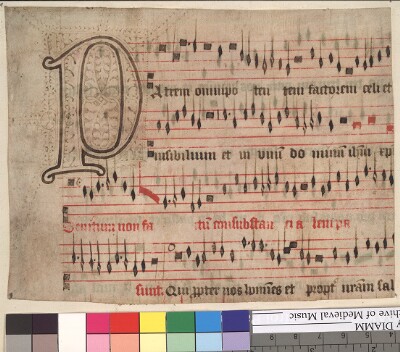 Patrem omnipo ten tem factorem celi et
Inuisibilium et in unū do minum ihm xp
Genitum non fa ctū consubstan ti a lem pa
sunt. Qui ppter nos homines et propt nram sal
by DIAMM
chive of Medieval Music